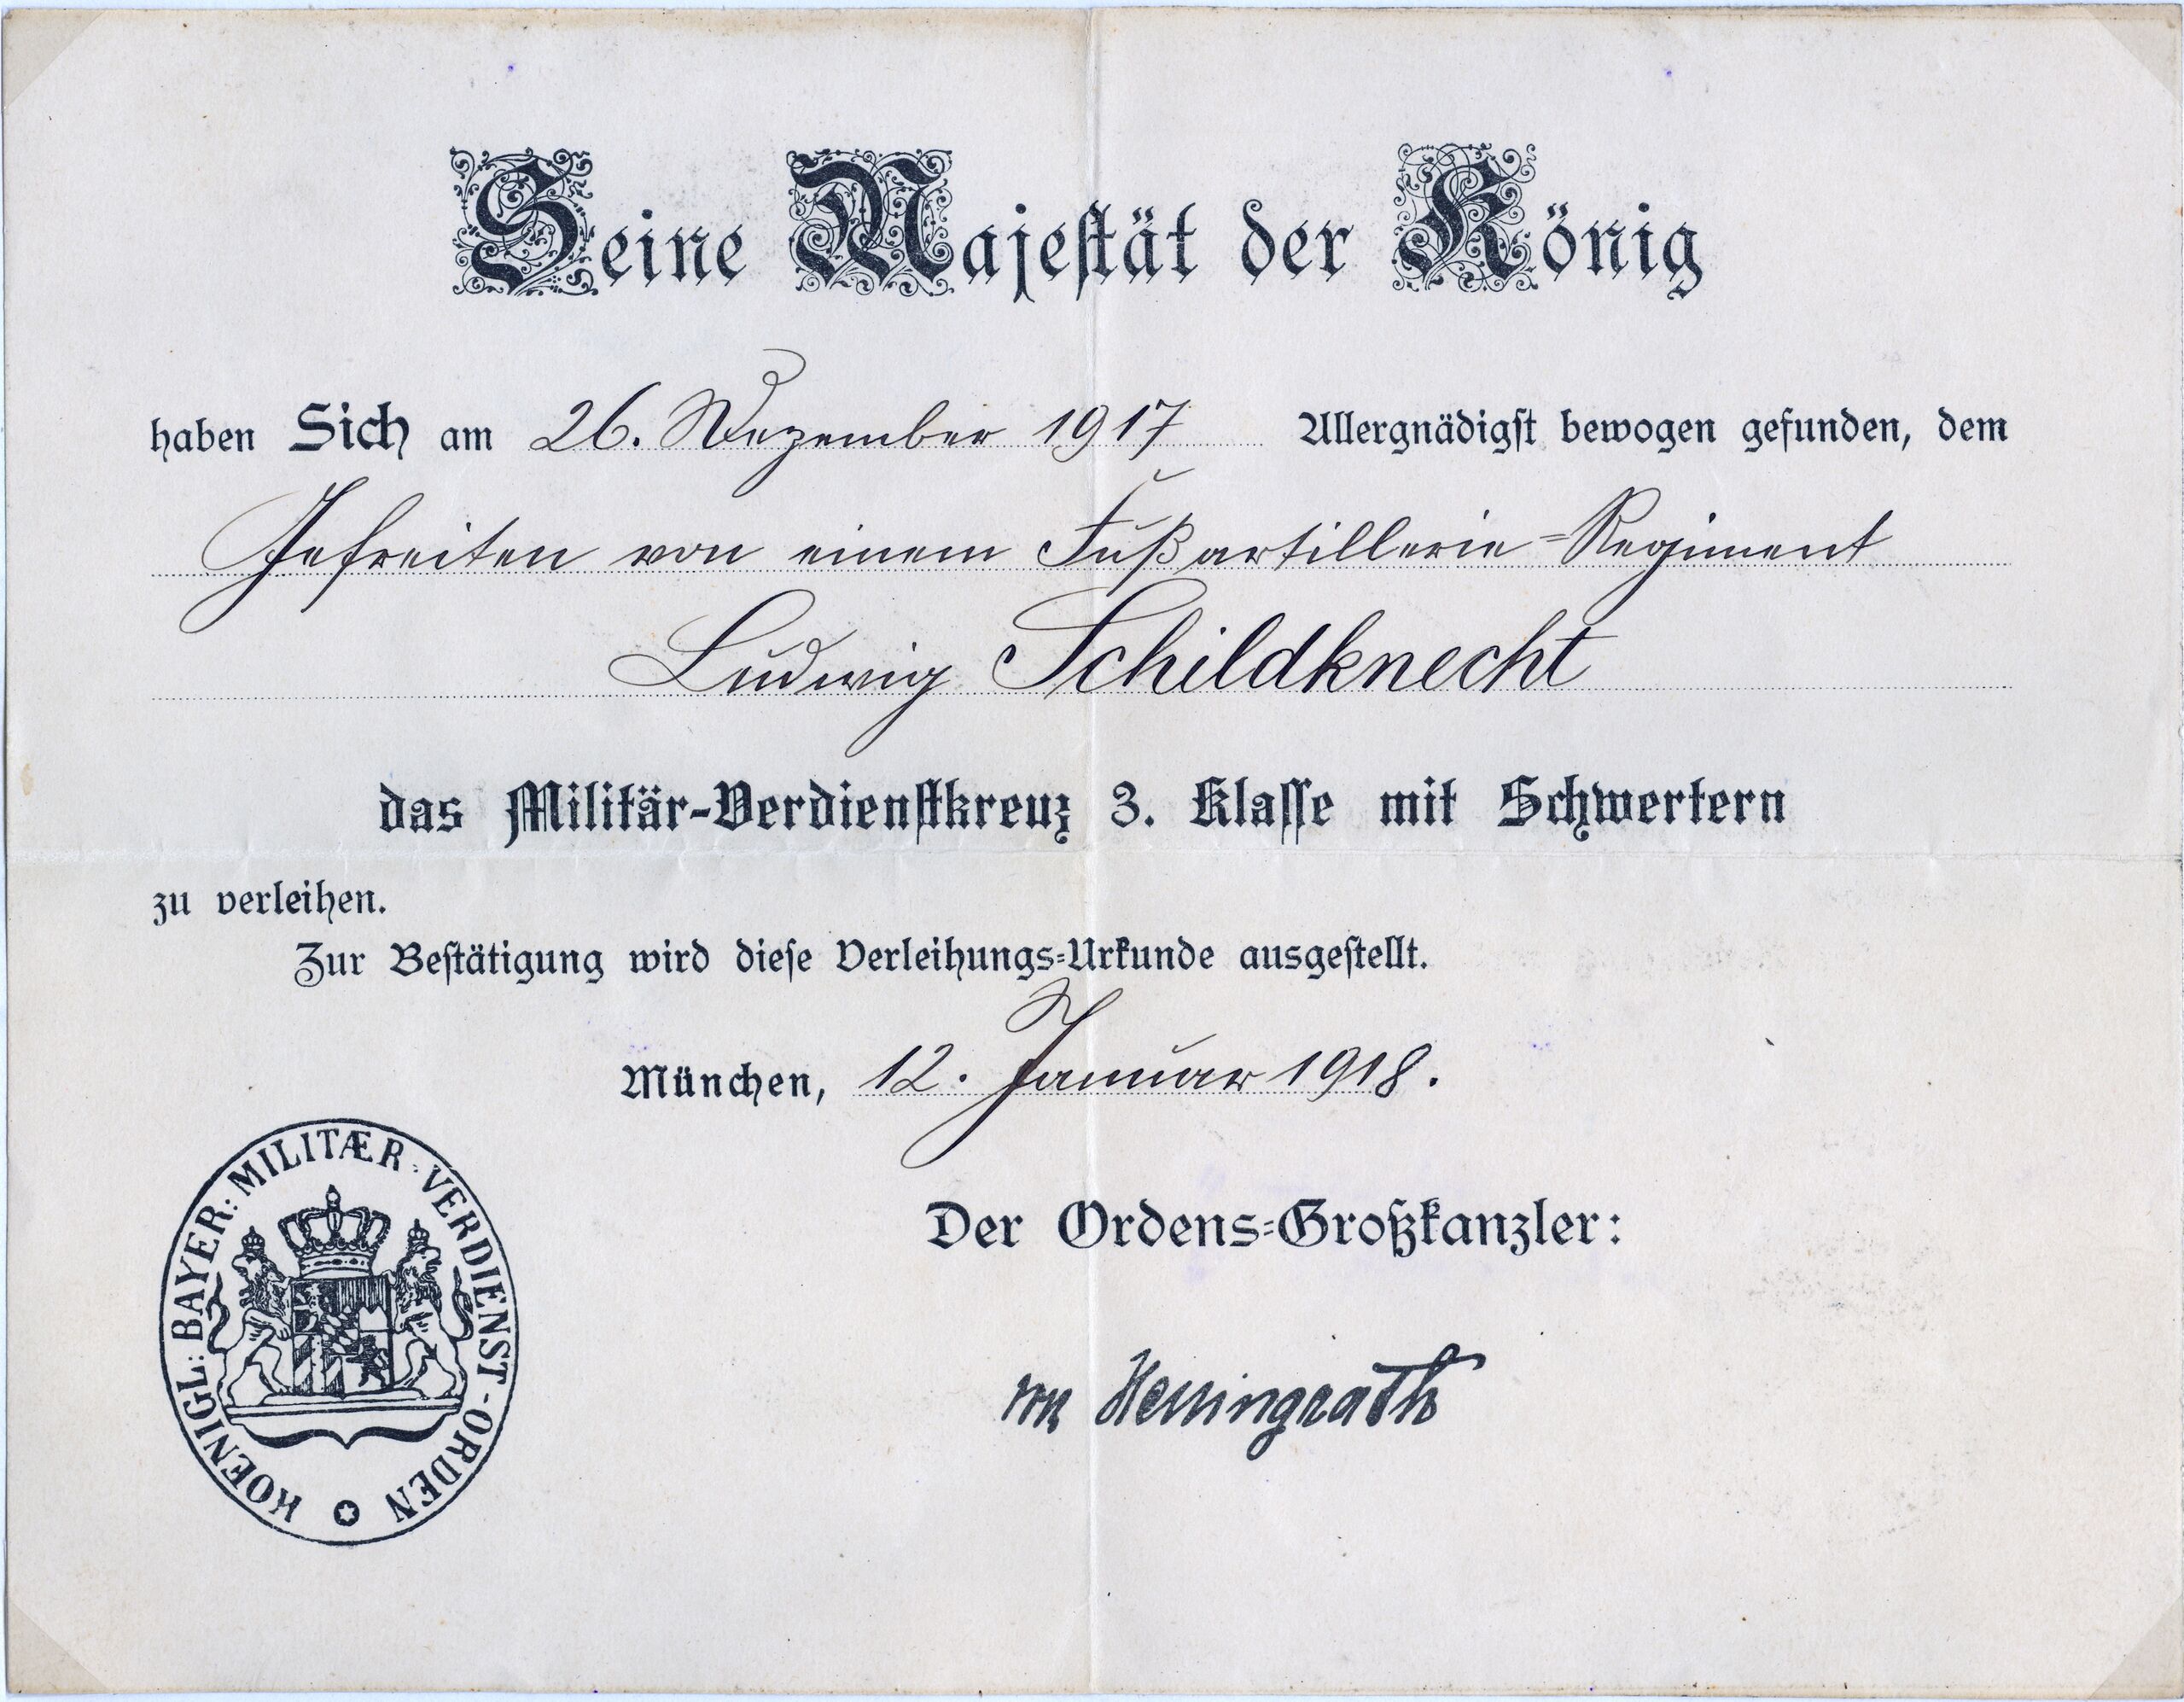 Seine Majestät der König
haben Sich am 26. Dezember 1917 Allergnädigst bewogen gefunden, dem
Gefreiten von einem Fußartillerie=Regiment
Ludwig Schildknecht
das Militär-Verdienstkreuz 3. Klasse mit Schwertern
zu verleihen.
Zur Bestätigung wird diese Verleihungs=Urkunde ausgestellt.
München, 12. Januar 1918.
KOENIGL: BAYER: MILITÆR-VERDIENST-ORDEN
Der Ordens=Großkanzler:
von